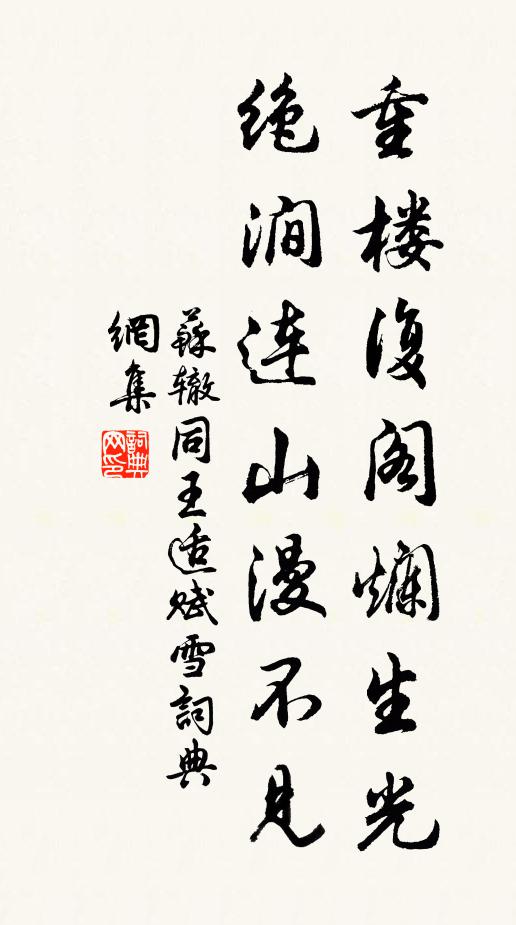 重楼复阁爛生光
绝涧连山漫不见
蘇辙同王适赋雪詞典
網集
詞典网印